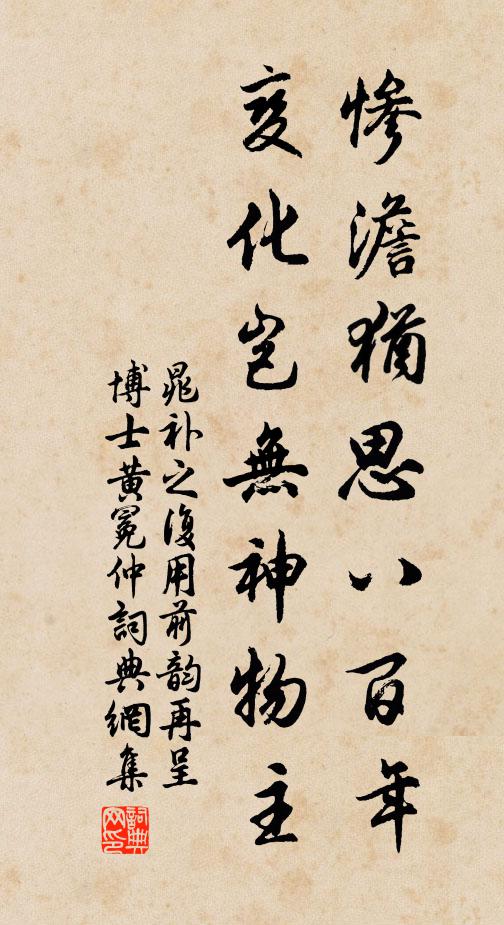 慘澹猶思八百年
変化豈無神物主
晁补之復用前韵再呈
博士黃冕仲詞典網集
詞典网印